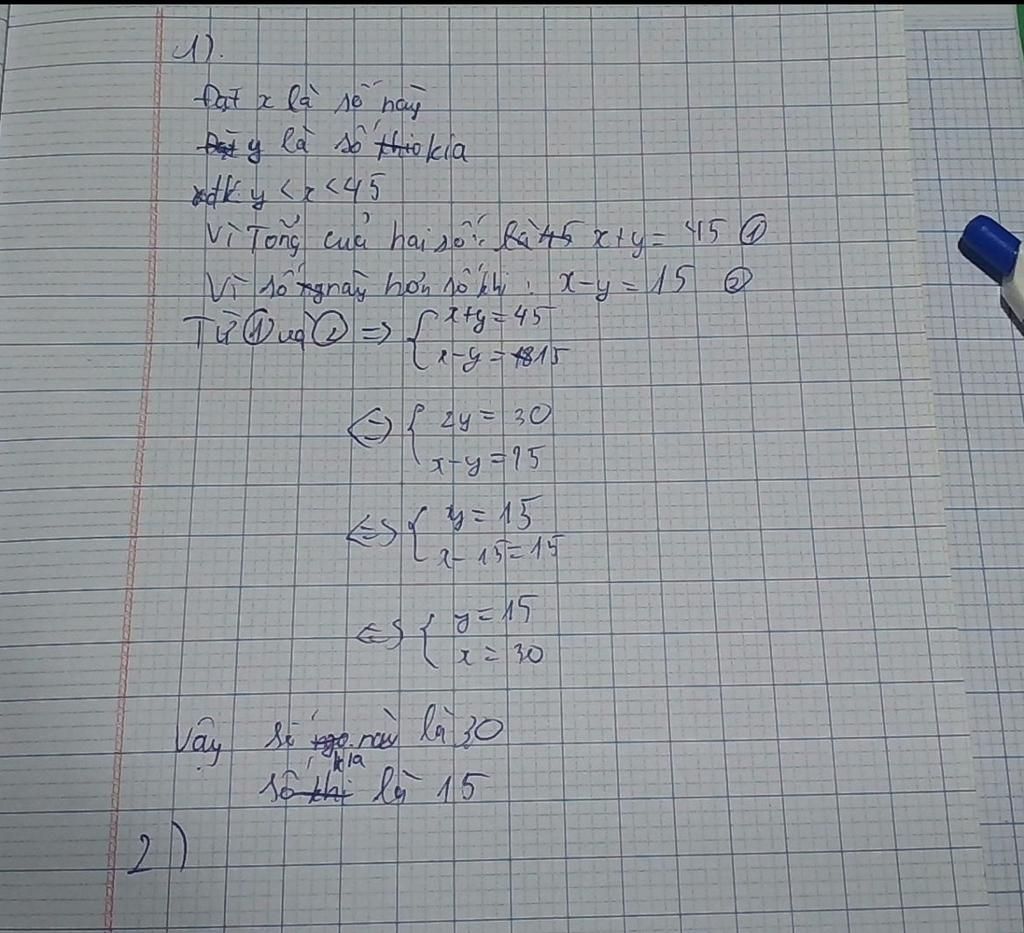 1).
Đặt x là số này
y là số kia
đk y < x < 45
Vì Tổng của hai số: x+y = 45 ①
Vì số này hơn số khi : x-y = 15 ②
Từ ① và ② => { x+y = 45
x-y = 15
<=> { 2y = 30
x-y = 15
<=> { y = 15
x - 15 = 15
<=> { y = 15
x = 30
Vậy số này là 30
kia
số khi là 15
2)